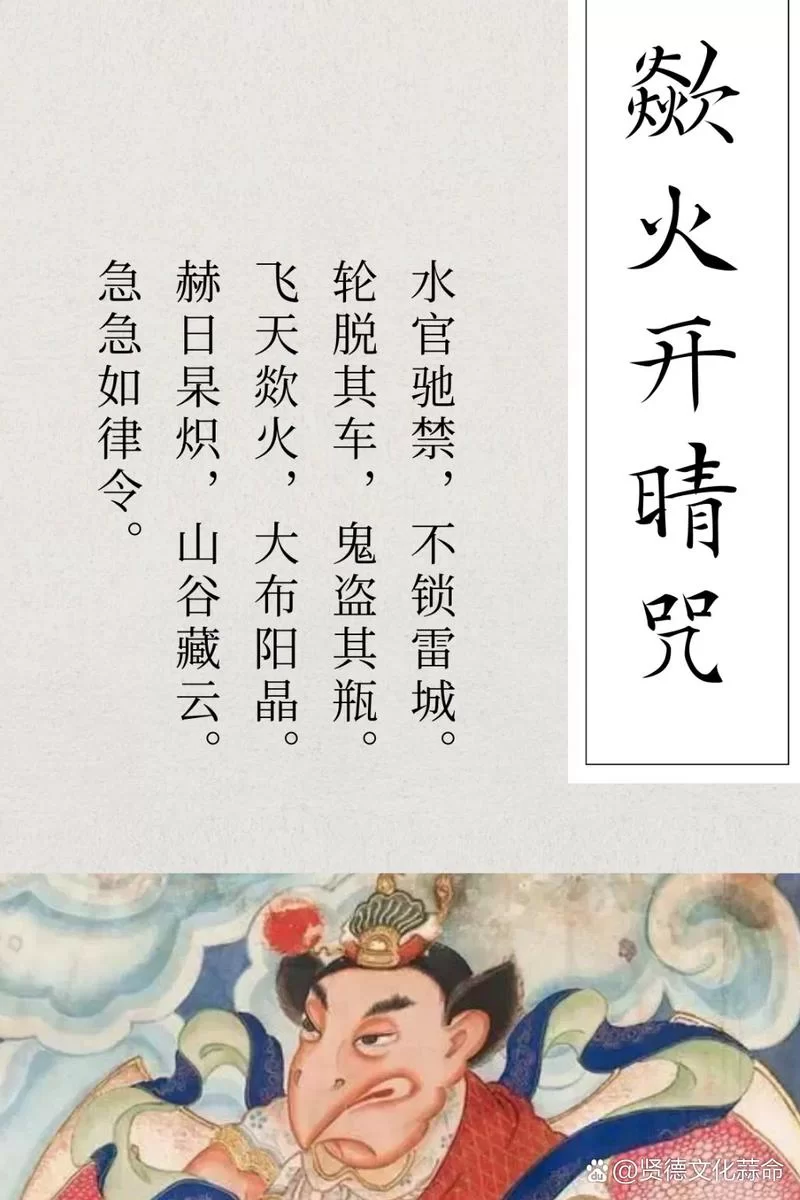 歘火开晴咒
水官驰禁，不锁雷城。
轮脱其车，鬼盗其瓶。
飞天欻火，大布阳晶。
赫日杲炽，山谷藏云。
急急如律令。
@贤德文化蒜命